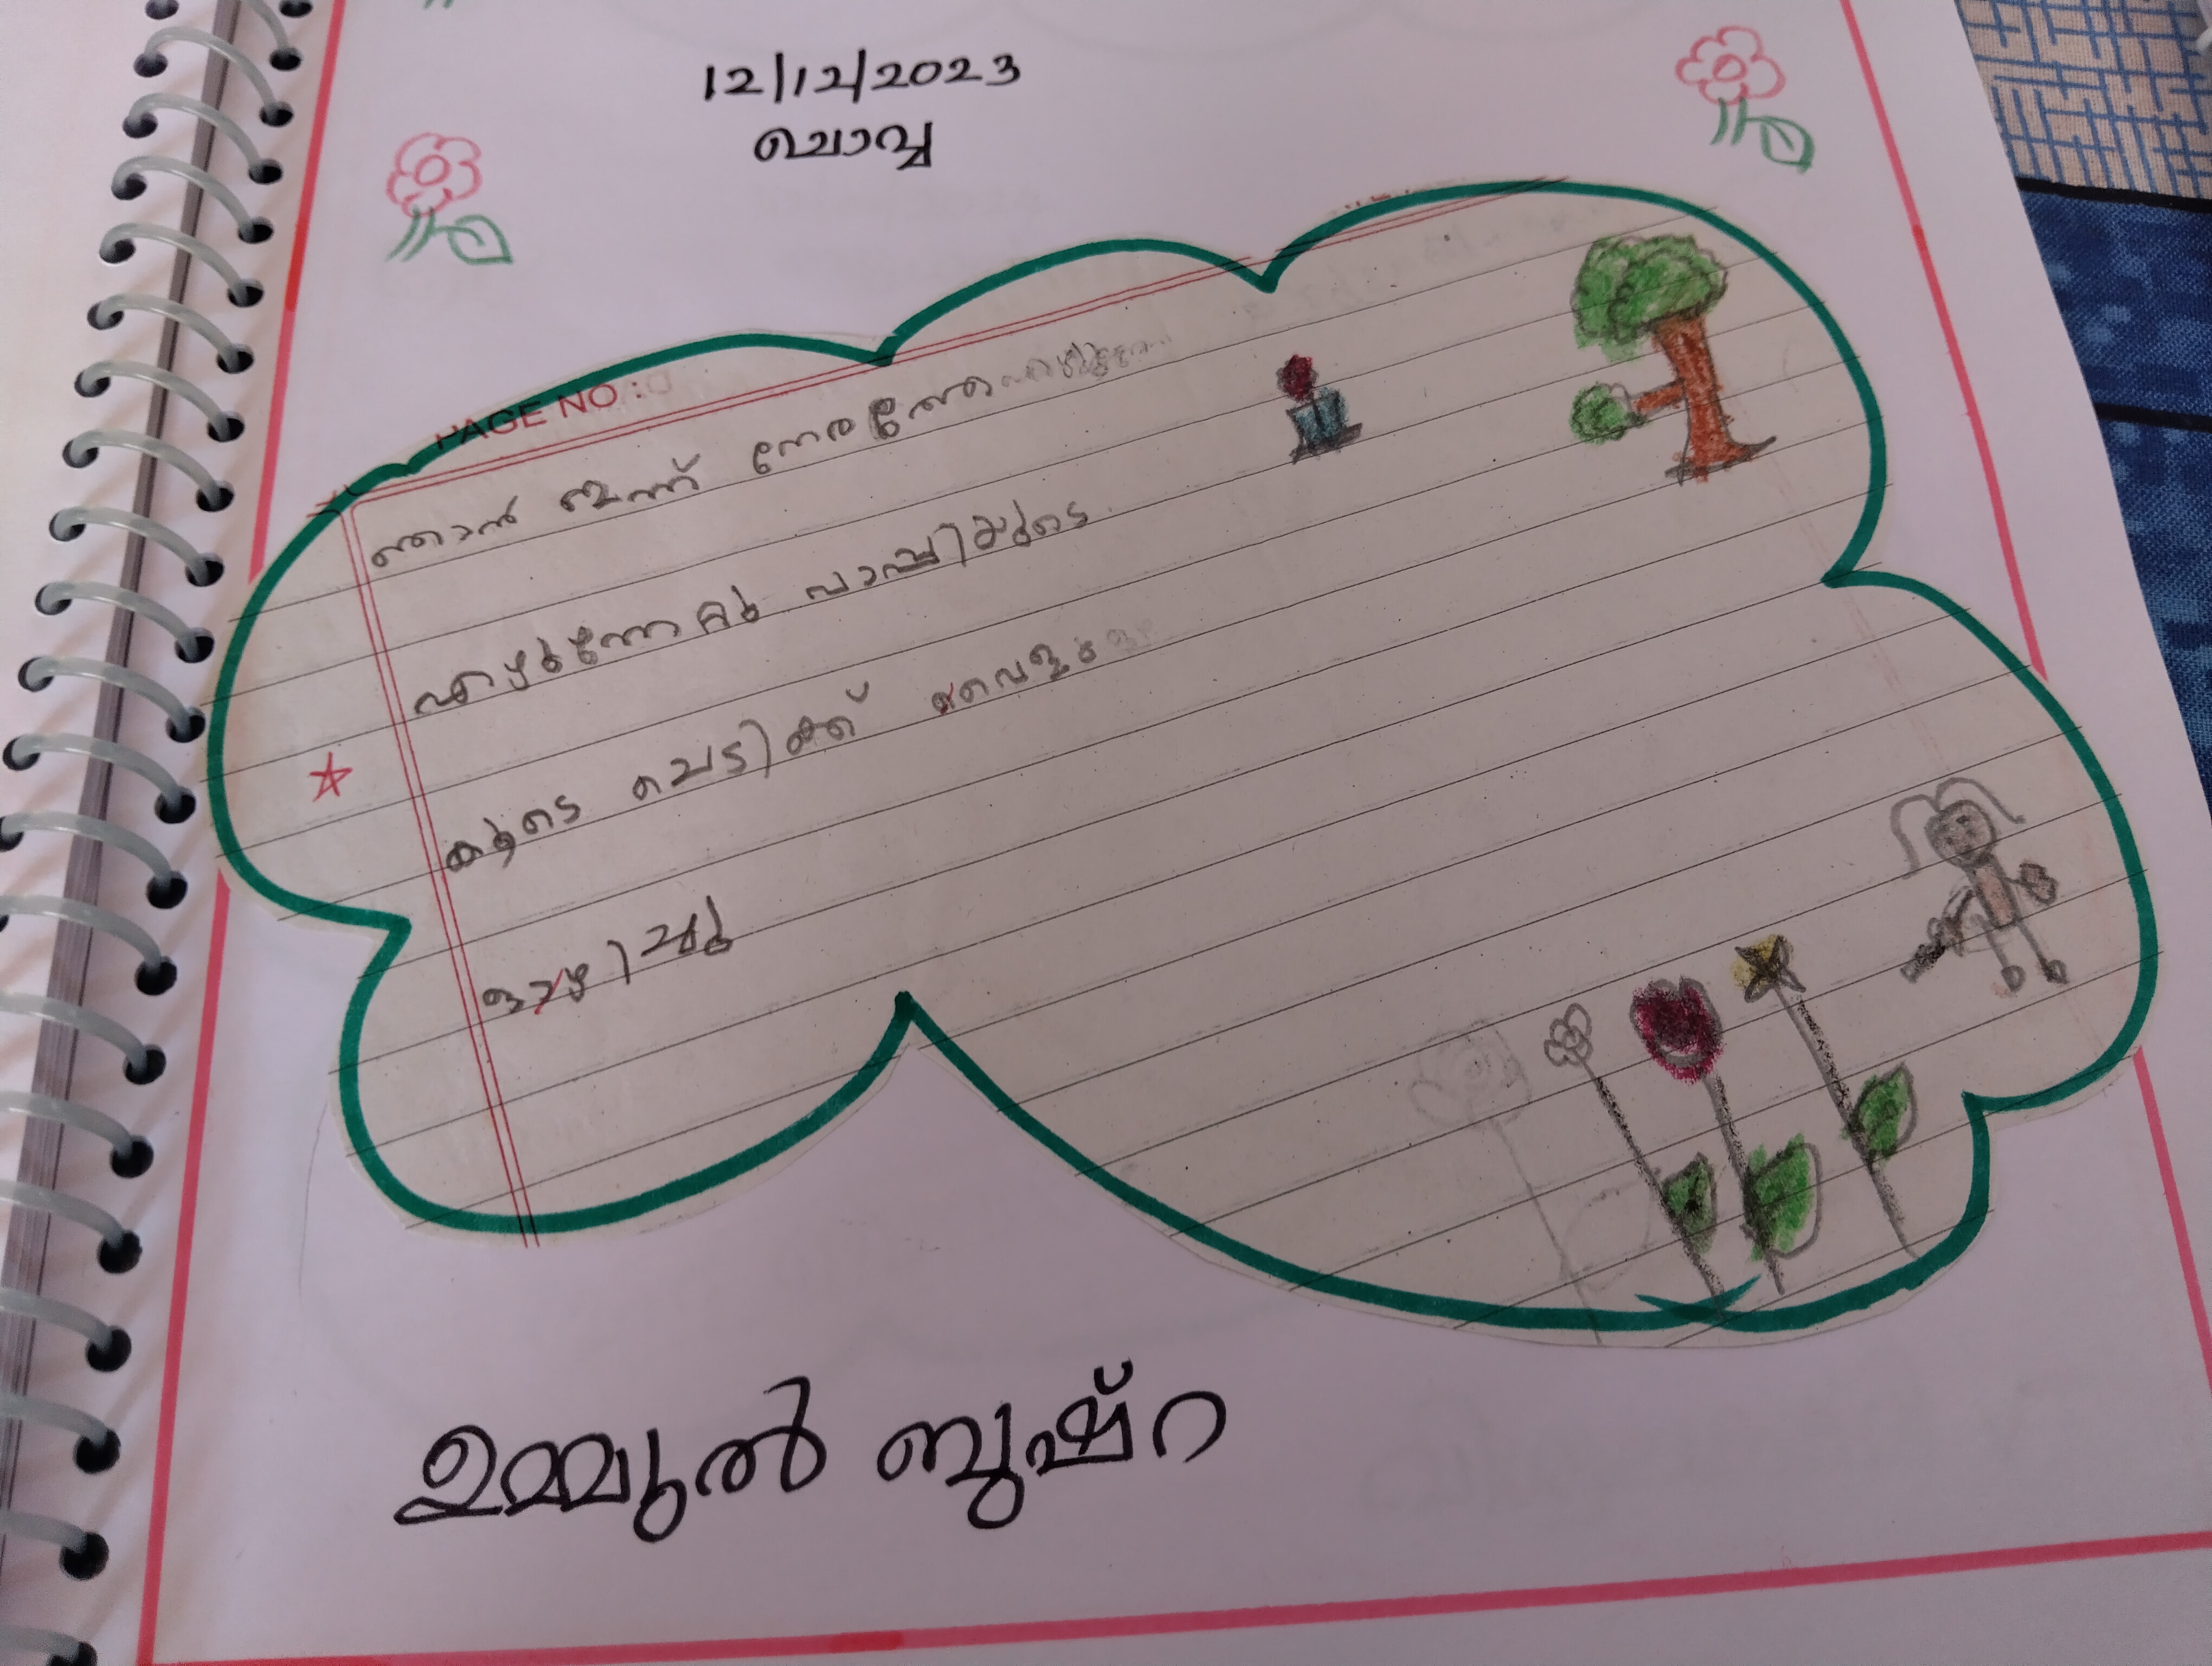 12/12/2023
ചൊവ്വ
PAGE NO :
ഞാൻ ഇന്ന് നേരത്തേ
എഴുന്നേറ്റു
കൂടെ ചെടിക്ക് വെള്ളം
ഒഴിച്ചു
ഉമ്മുൽ ബുഷ്റ